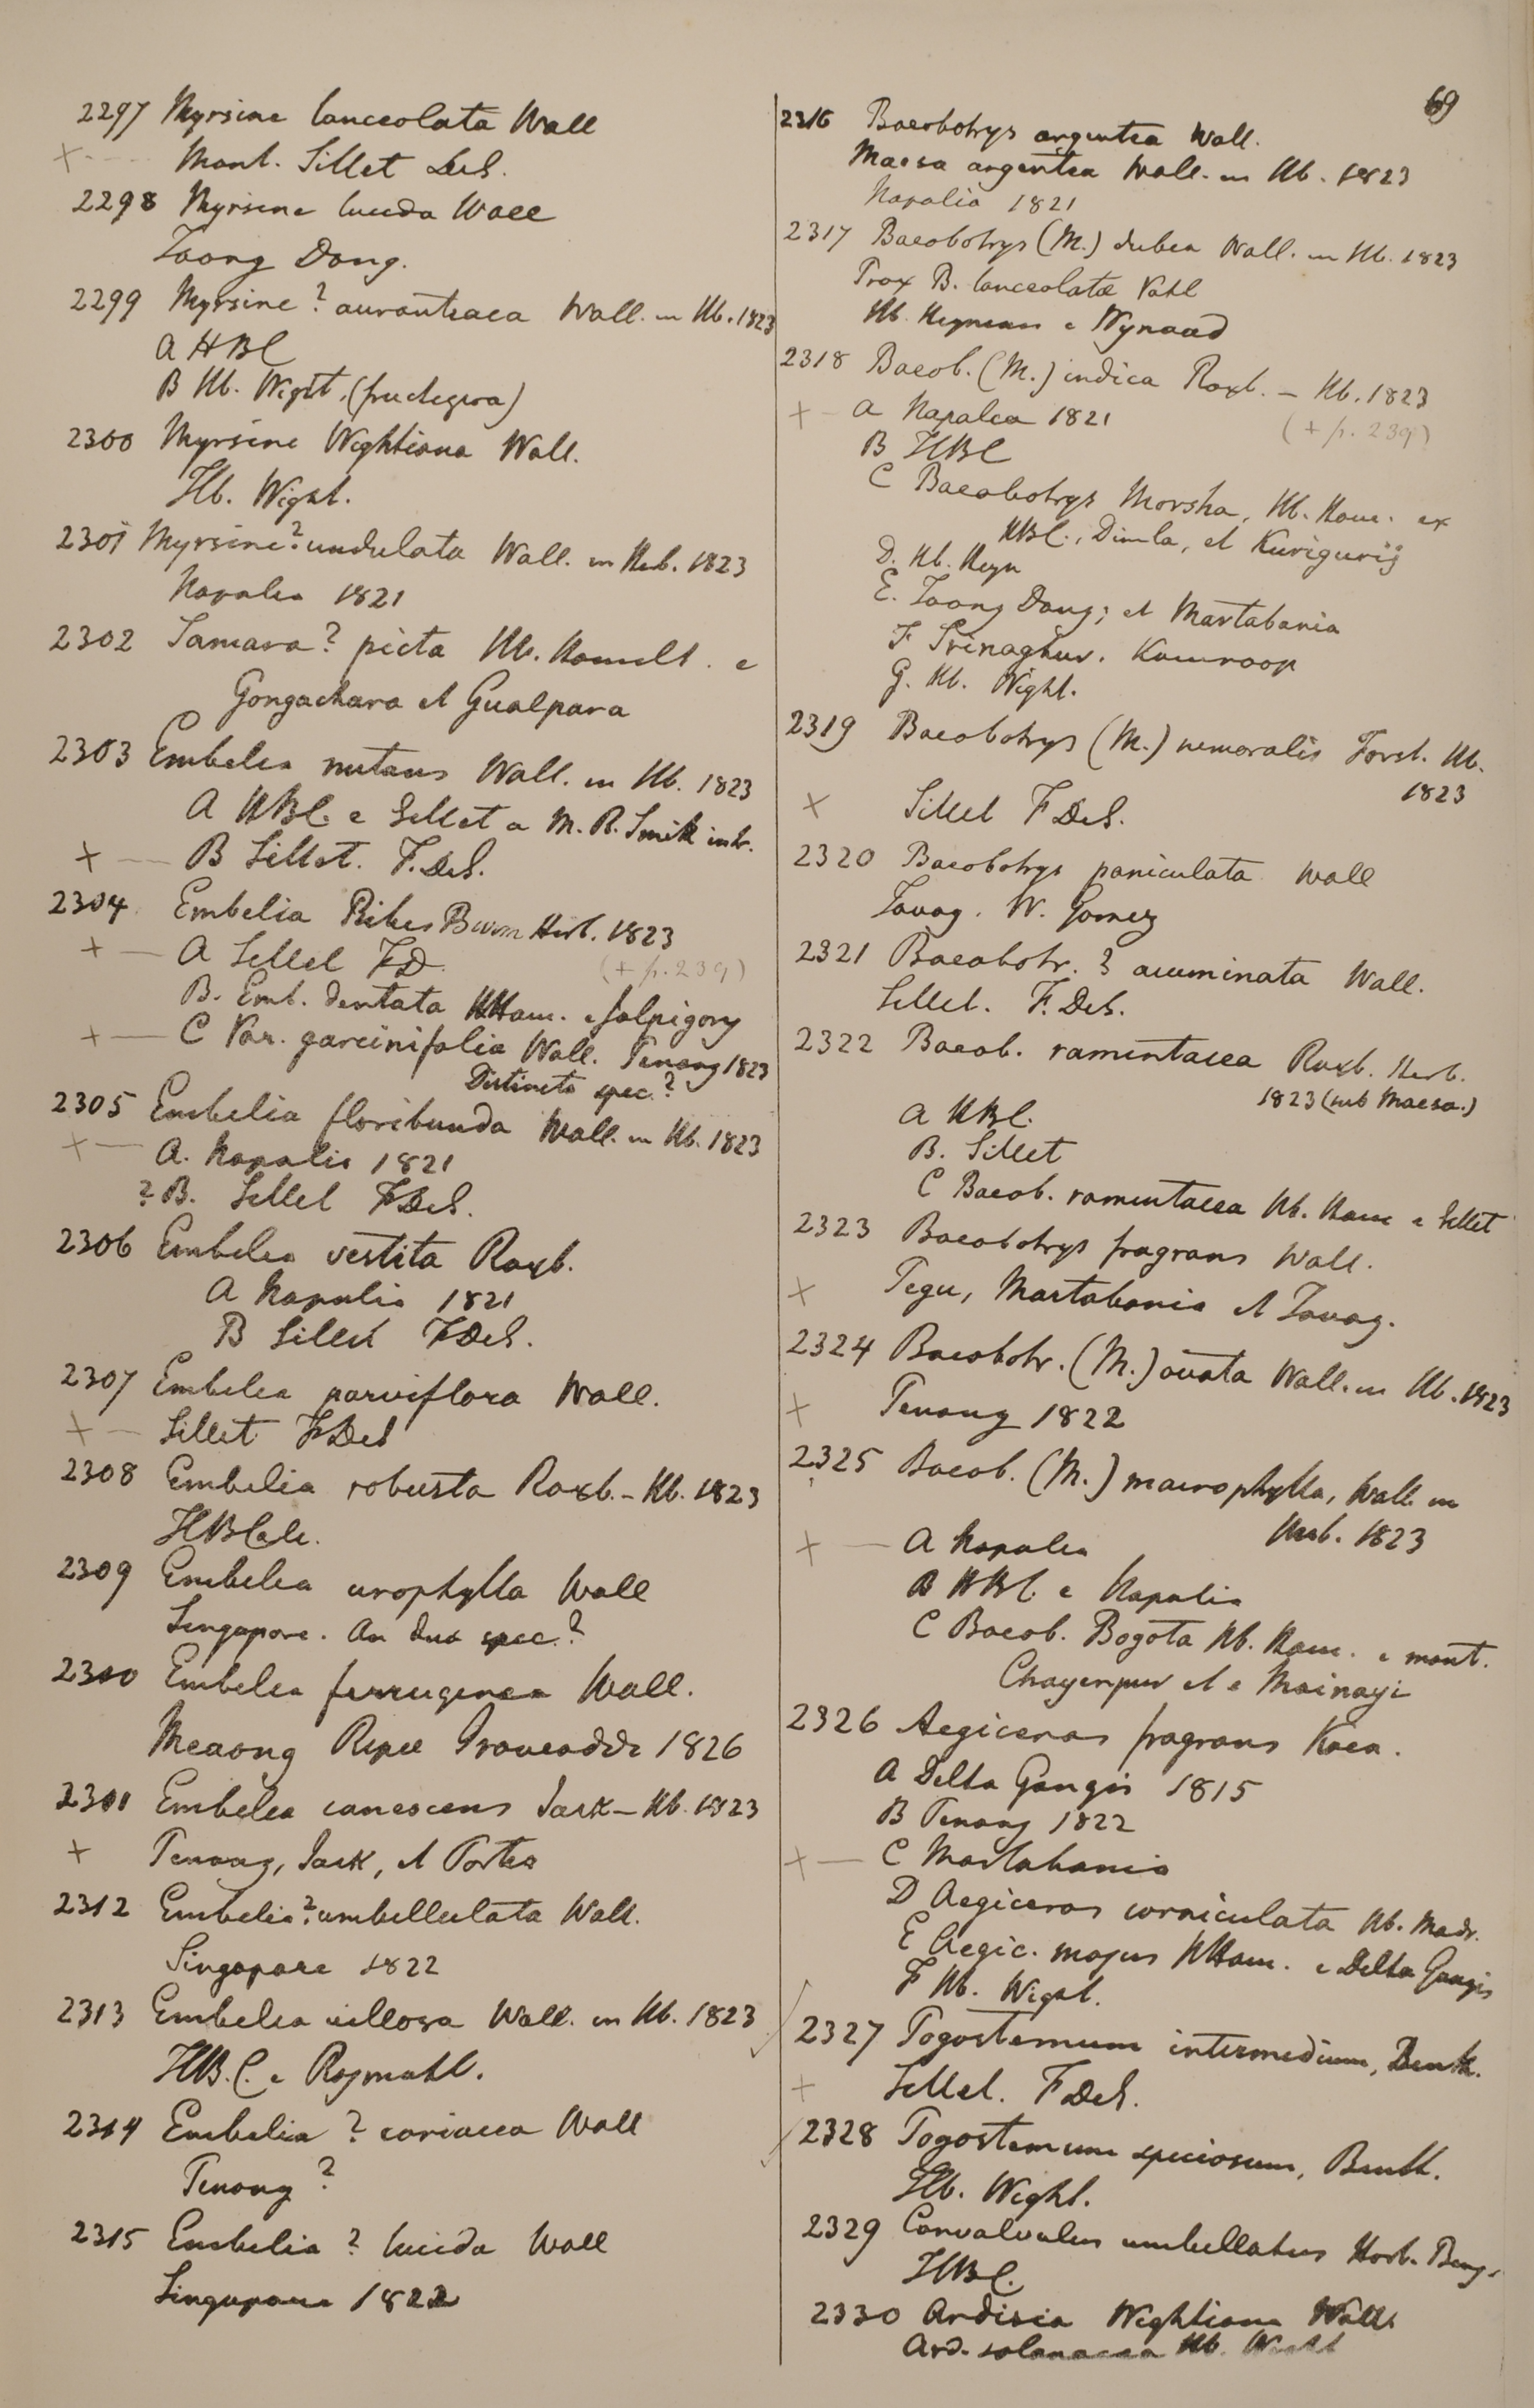 69
2297 Myrsine lanceolata Wall
Mont. Sillet DeS.
2298 Myrsine lucida Wall
Taong Dong.
2299 Myrsine? aurantiaca Wall. in Hb. 1823
A HBC
B Hb. Wight. (fructigera)
2300 Myrsine Wightiana Wall.
Hb. Wight.
2301 Myrsine? undulata Wall. in Herb. 1823
Napalia 1821
2302 Samara? picta Hb. Hamilt. e
Gongachara et Gualpara
2303 Embelia nutans Wall. in Hb. 1823
A HBC. e Sillet a M. R. Smith
B Sillet. F. DeS.
2304 Embelia Ribes Burm Herb. 1823
A Sillet FD (+ p. 239)
B. Emb. dentata HHam. e Jalpigory
C Var. garcinifolia Wall. Penang 1823
Distincta spec.?
2305 Embelia floribunda Wall. in Hb. 1823
A. Napalia 1821
? B. Sillet FDeS.
2306 Embelia vestita Roxb.
A Napalia 1821
B Sillet FDeS.
2307 Embelia parviflora Wall.
Sillet FDeS
2308 Embelia robusta Roxb. – Hb. 1823
HBCalc.
2309 Embelia urophylla Wall
Singapore. An dua spec.?
2310 Embelia ferruginea Wall.
1826
2311 Embelia canescens Jack – Hb. 1823
Penang, Jack, et Porter
2312 Embelia? umbellulata Wall.
Singapore 1822
2313 Embelia villosa Wall. in Hb. 1823
HB.C. e Rajmahl.
2314 Embelia ? coriacea Wall
Penang?
2315 Embelia ? lucida Wall
Singapore 1822
2316 Baeobotrys argentea Wall.
Maesa argentea Wall. in Hb. 1823
Napalia 1821
2317 Baeobotrys (M.) dubia Wall. in Hb. 1823
Prox B. lanceolatae Vahl
Hb. Heynean e Wynaad
2318 Baeob. (M.) indica Roxb. – Hb. 1823
A Napalia 1821 (+ p. 239)
B HBC
C Baeobotrys Morsha, Hb. Ham. ex
HBC., Dimla, et Kurigurij
D. Hb. Heyn
E. Taong Dong; et Martabania
F Srinaghur. Kamroop
G. Hb. Wight.
2319 Baeobotrys (M.) nemoralis Forst. Hb.
1823
Sillet F DeS.
2320 Baeobotrys paniculata Wall
Tavoy. W. Gomez
2321 Baeobotr. ? acuminata Wall.
Sillet. F. DeS.
2322 Baeob. ramentacea Roxb. Herb.
1823 (sub Maesa.)
A HBC.
B. Sillet
C Baeob. ramentacea Hb. Ham e Sillet
2323 Baeobotrys fragrans Wall.
Pegu, Martabania et Tavoy.
2324 Baeobotr. (M.) ovata Wall. in Hb. 1823
Penang 1822
2325 Baeob. (M.) macrophylla, Wall in
Herb. 1823
A Napalia
B HBC. e Napalia
C Baeob. Bogota Hb. Ham. e mont.
Chayenpur et e Mainayi
2326 Aegiceras fragrans Koen.
A Delta Gangis 1815
B Penang 1822
C Martabania
D Aegiceras corniculata Hb. Madr.
E Aegic. majus HHam. e Delta Gangis
F Hb. Wight.
2327 Pogostemum intermedium, Benth.
Sillet. F DeS.
2328 Pogostemum speciosum, Benth.
Hb. Wight.
2329 Convolvulus umbellatus Hort. Beng.
HBC.
2330 Ardisia Wightiana Wall.
Ard. solanacea Hb. Wight